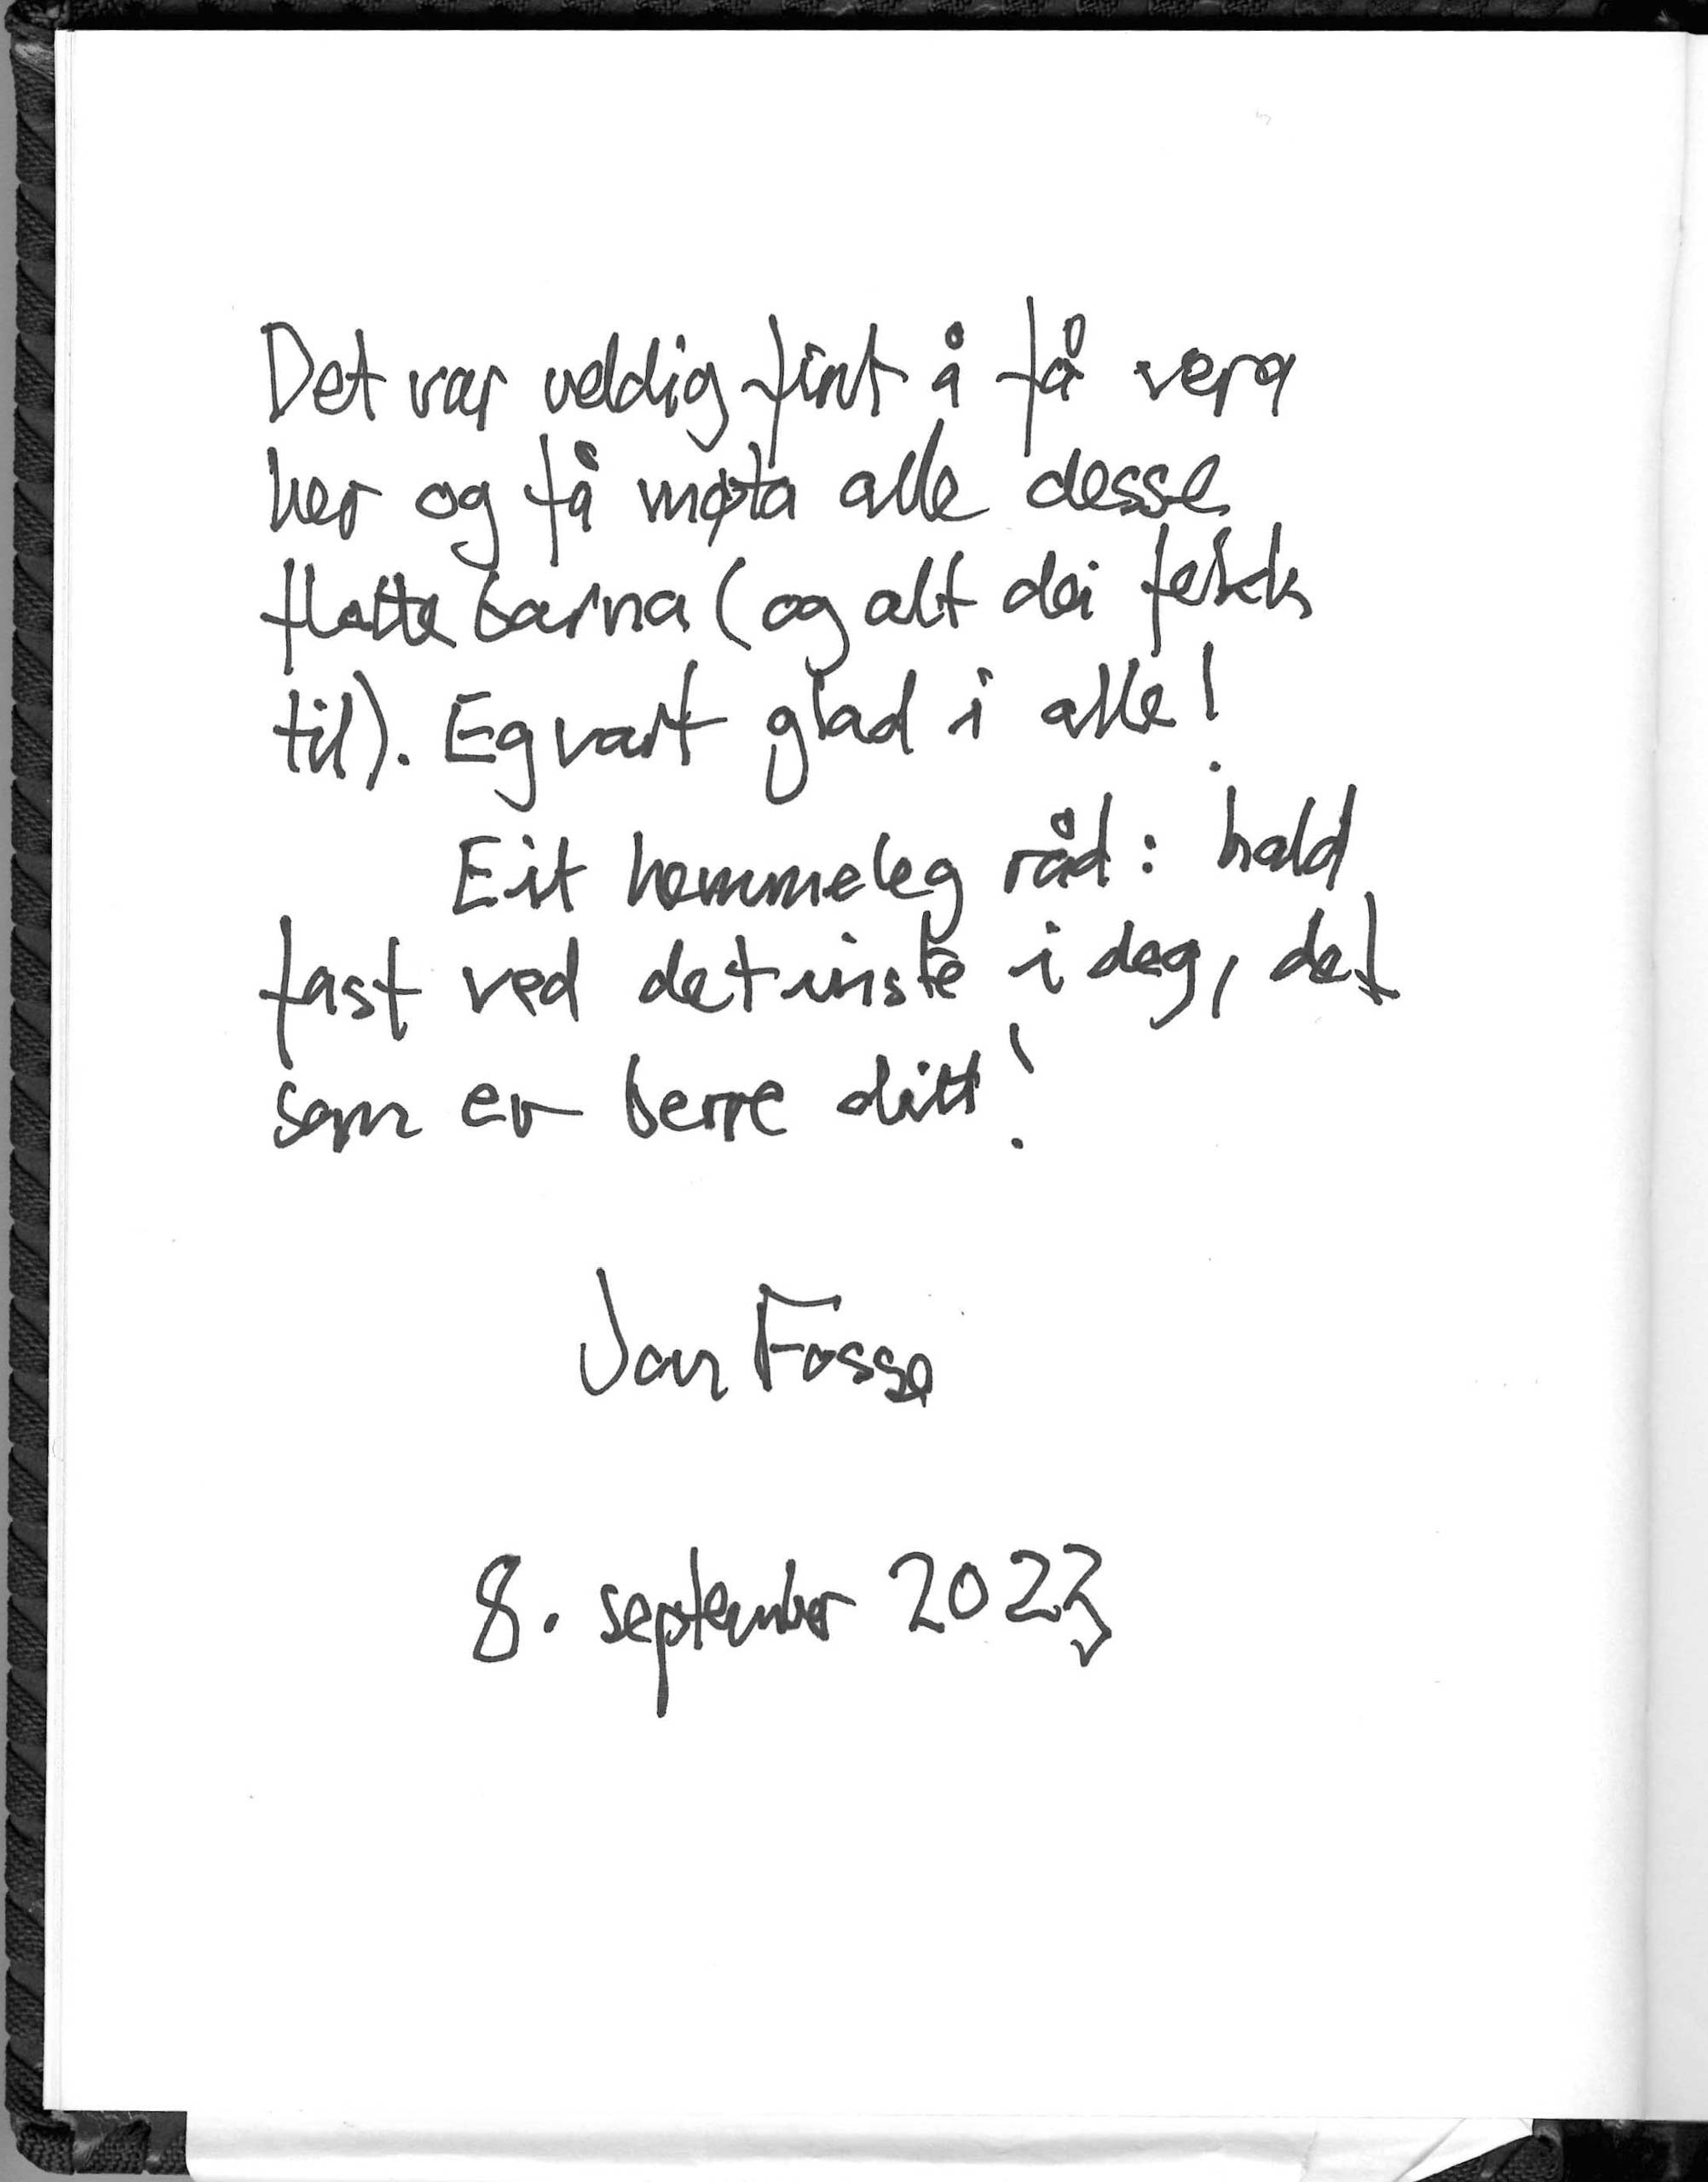 Det var veldig fint å få vera
her og få møta alle desse
flotte barna (og alt dei fekk
til). Eg vart glad i alle!
Eit hemmeleg råd: hald
fast ved det inste i deg, det
som er berre ditt!
Jon Fosse
8. september 2023